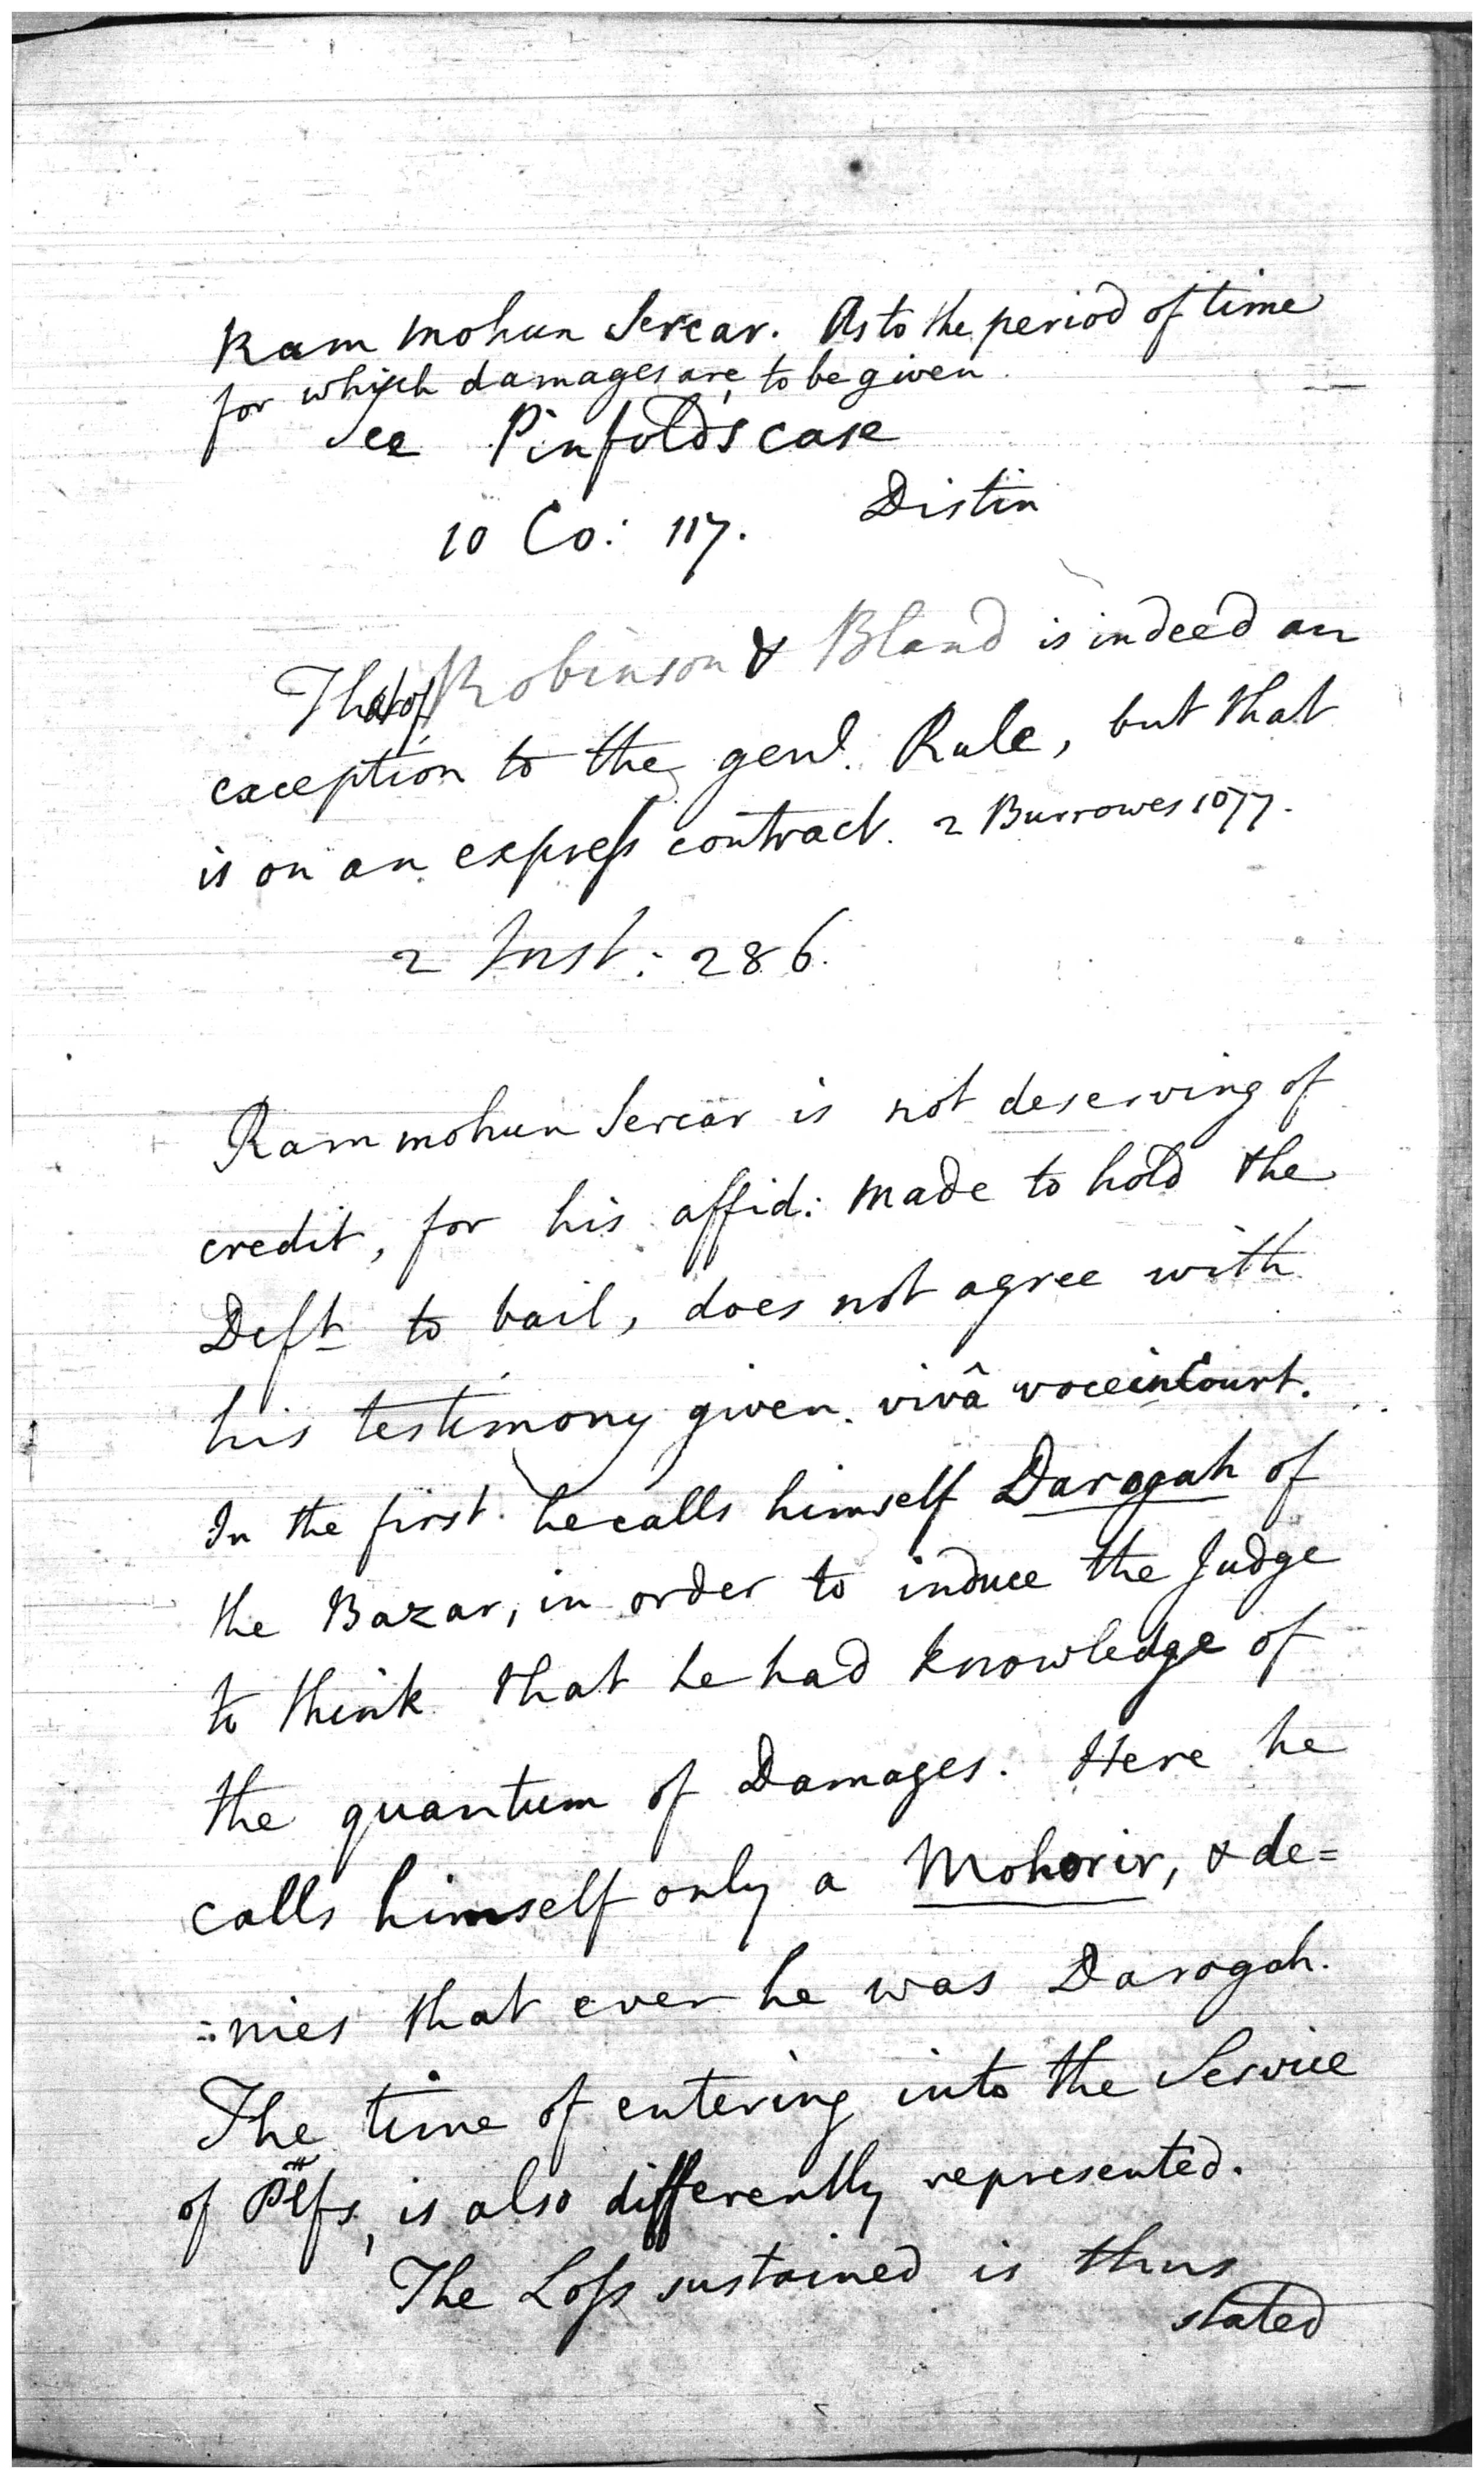 Ram mohun Sercar. As to the period of time
for which damages are to be given
See Pinfold's case
10 Co: 117. Distin
That of Robinson & Bland is indeed an
exception to the genl. Rule, but that
is on an express contract. 2 Burrowes 1077.
2 Inst: 286.
Ram mohun Sercar is not deserving of
credit, for his affid: made to hold the
Deft to bail, does not agree with
his testimony given vivâ voce in Court.
In the first he calls himself Darogah of
the Bazar, in order to induce the Judge
to think that he had knowledge of
the quantum of Damages. Here he
calls himself only a Mohorir, & de=
=nies that ever he was Darogah.
The time of entering into the Service
of Pltfs, is also differently represented.
The Loss sustained is thus
stated